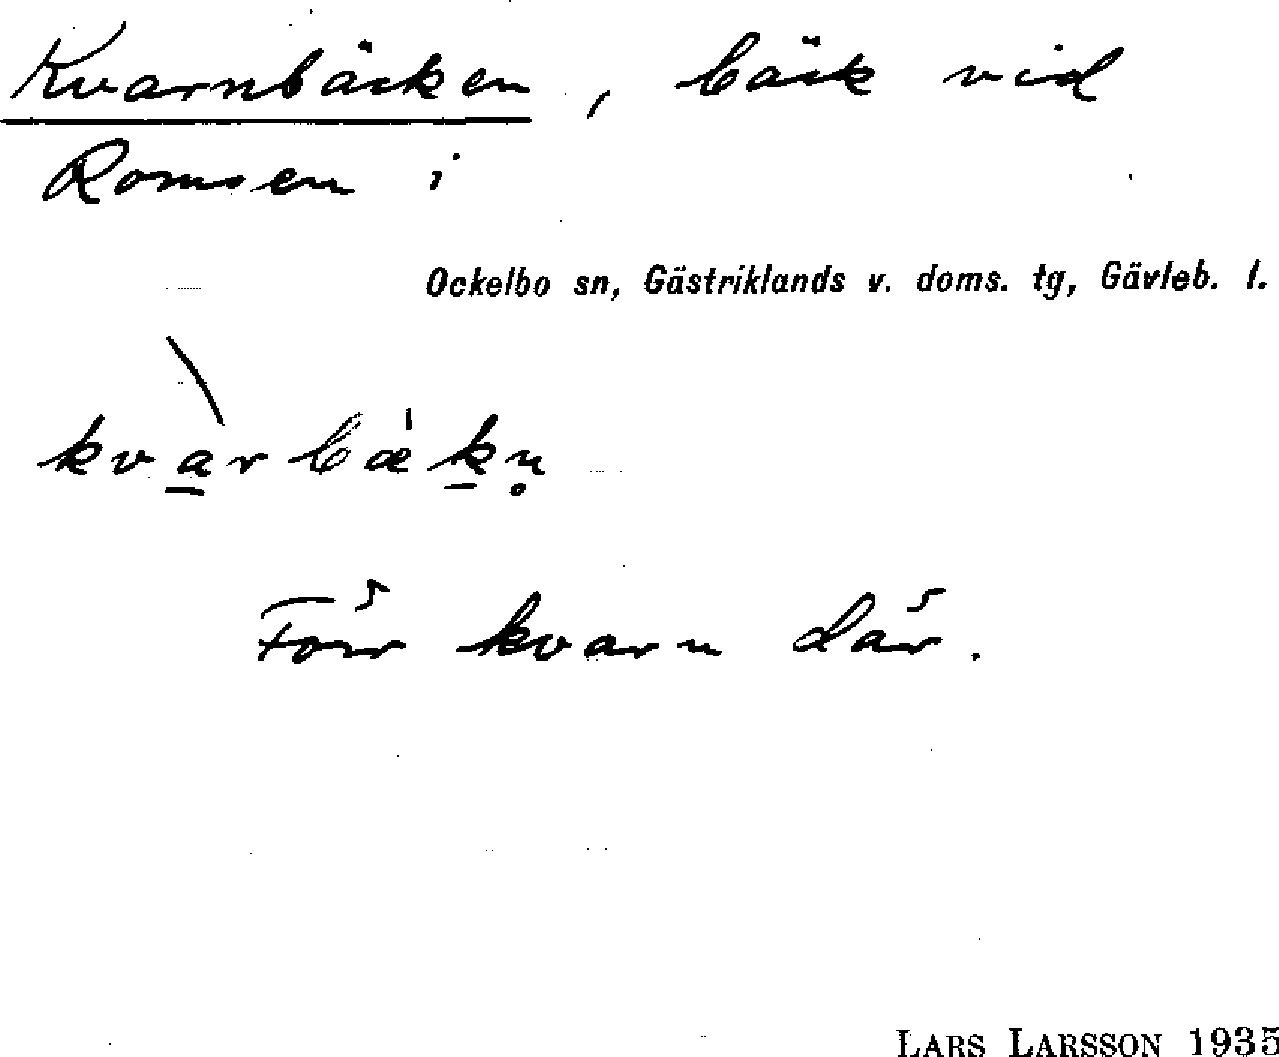 Kvarnbäcken, bäck vid
Romsen i
Ockelbo sn, Gästriklands v. doms. tg, Gävleb. l.
kva̲rbæ̍k̲n̥
Förr kvarn där.
LARS LARSSON 1935